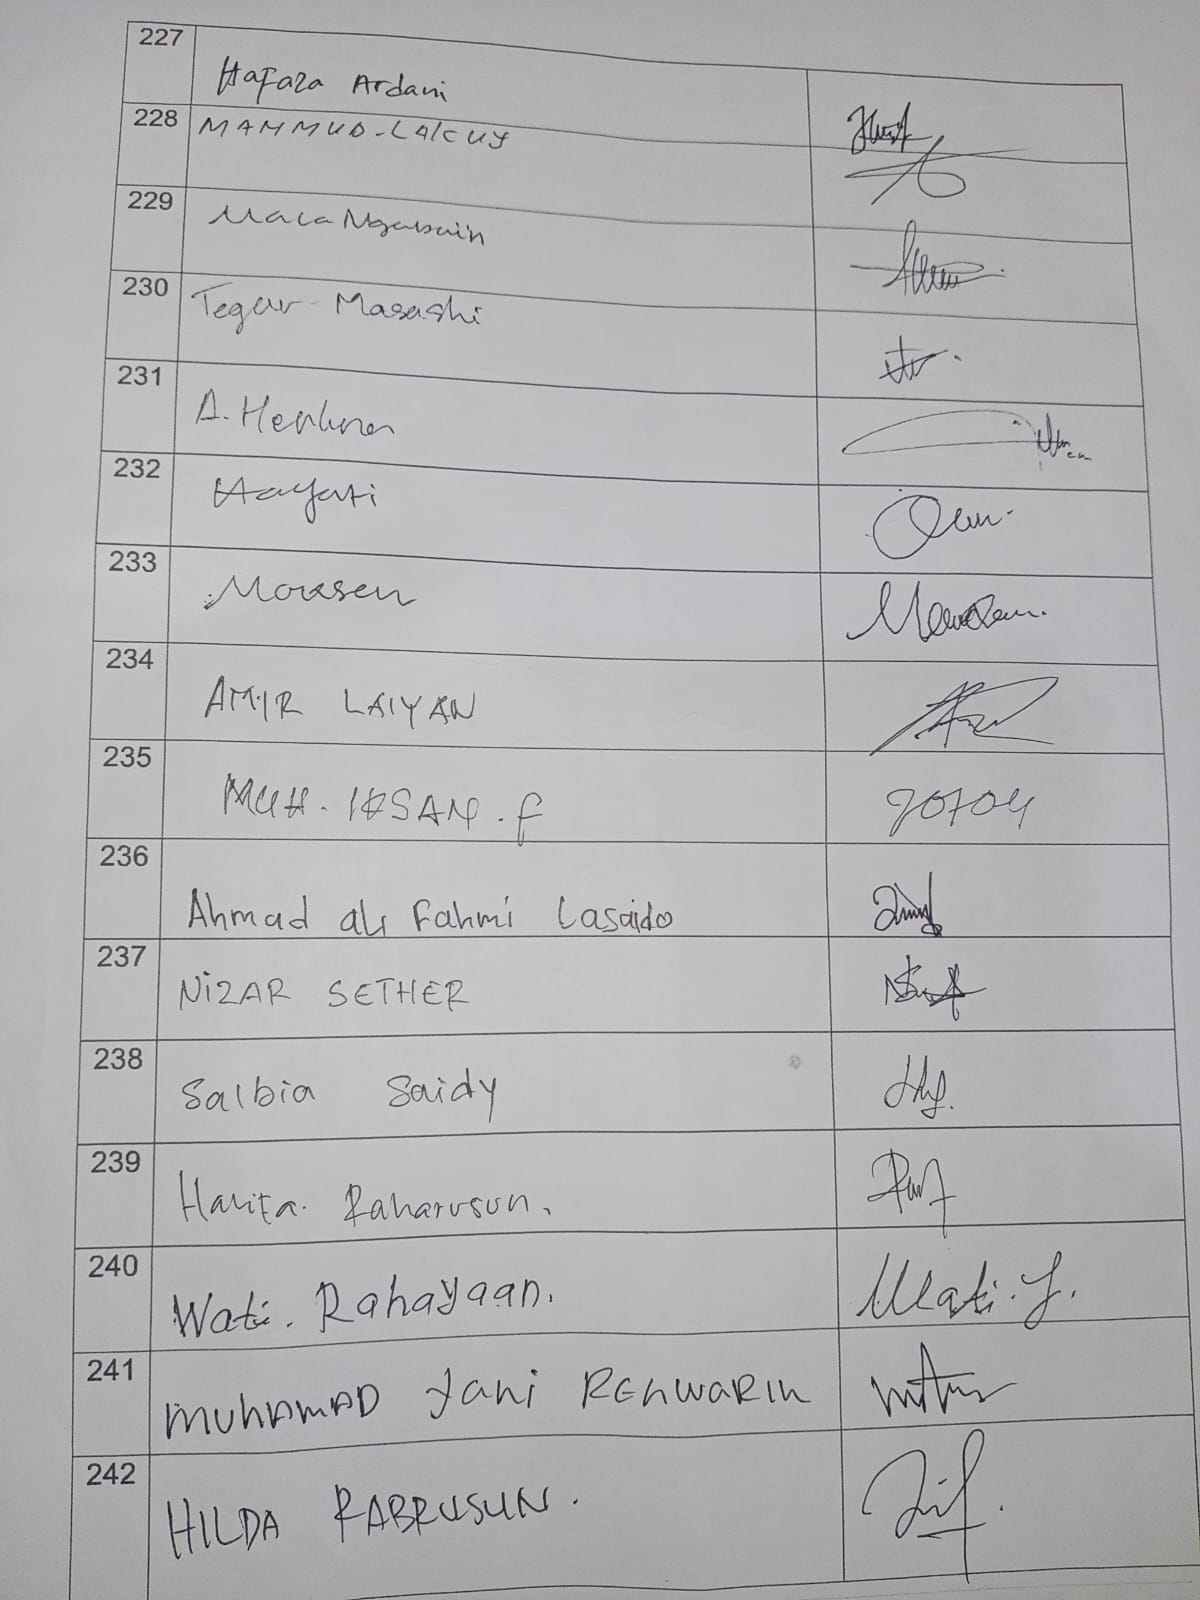 227 Hafaza Ardani
228 MAHMUD-LAKUY
229 Mala Ngabain
230 Tegar Masashi
231 A.
232 Hayati
233
234 AMIR LAIYAN
235 MUH. IKSAN. F 70704
236 Ahmad ali Fahmi Lasaido
237 NIZAR SETHER
238 Salbia Saidy
239 Raharusun.
240 Wati. Rahayaan. Wati. Y.
241 MUHAMAD Yani RENWARIN
242 HILDA RABRUSUN.